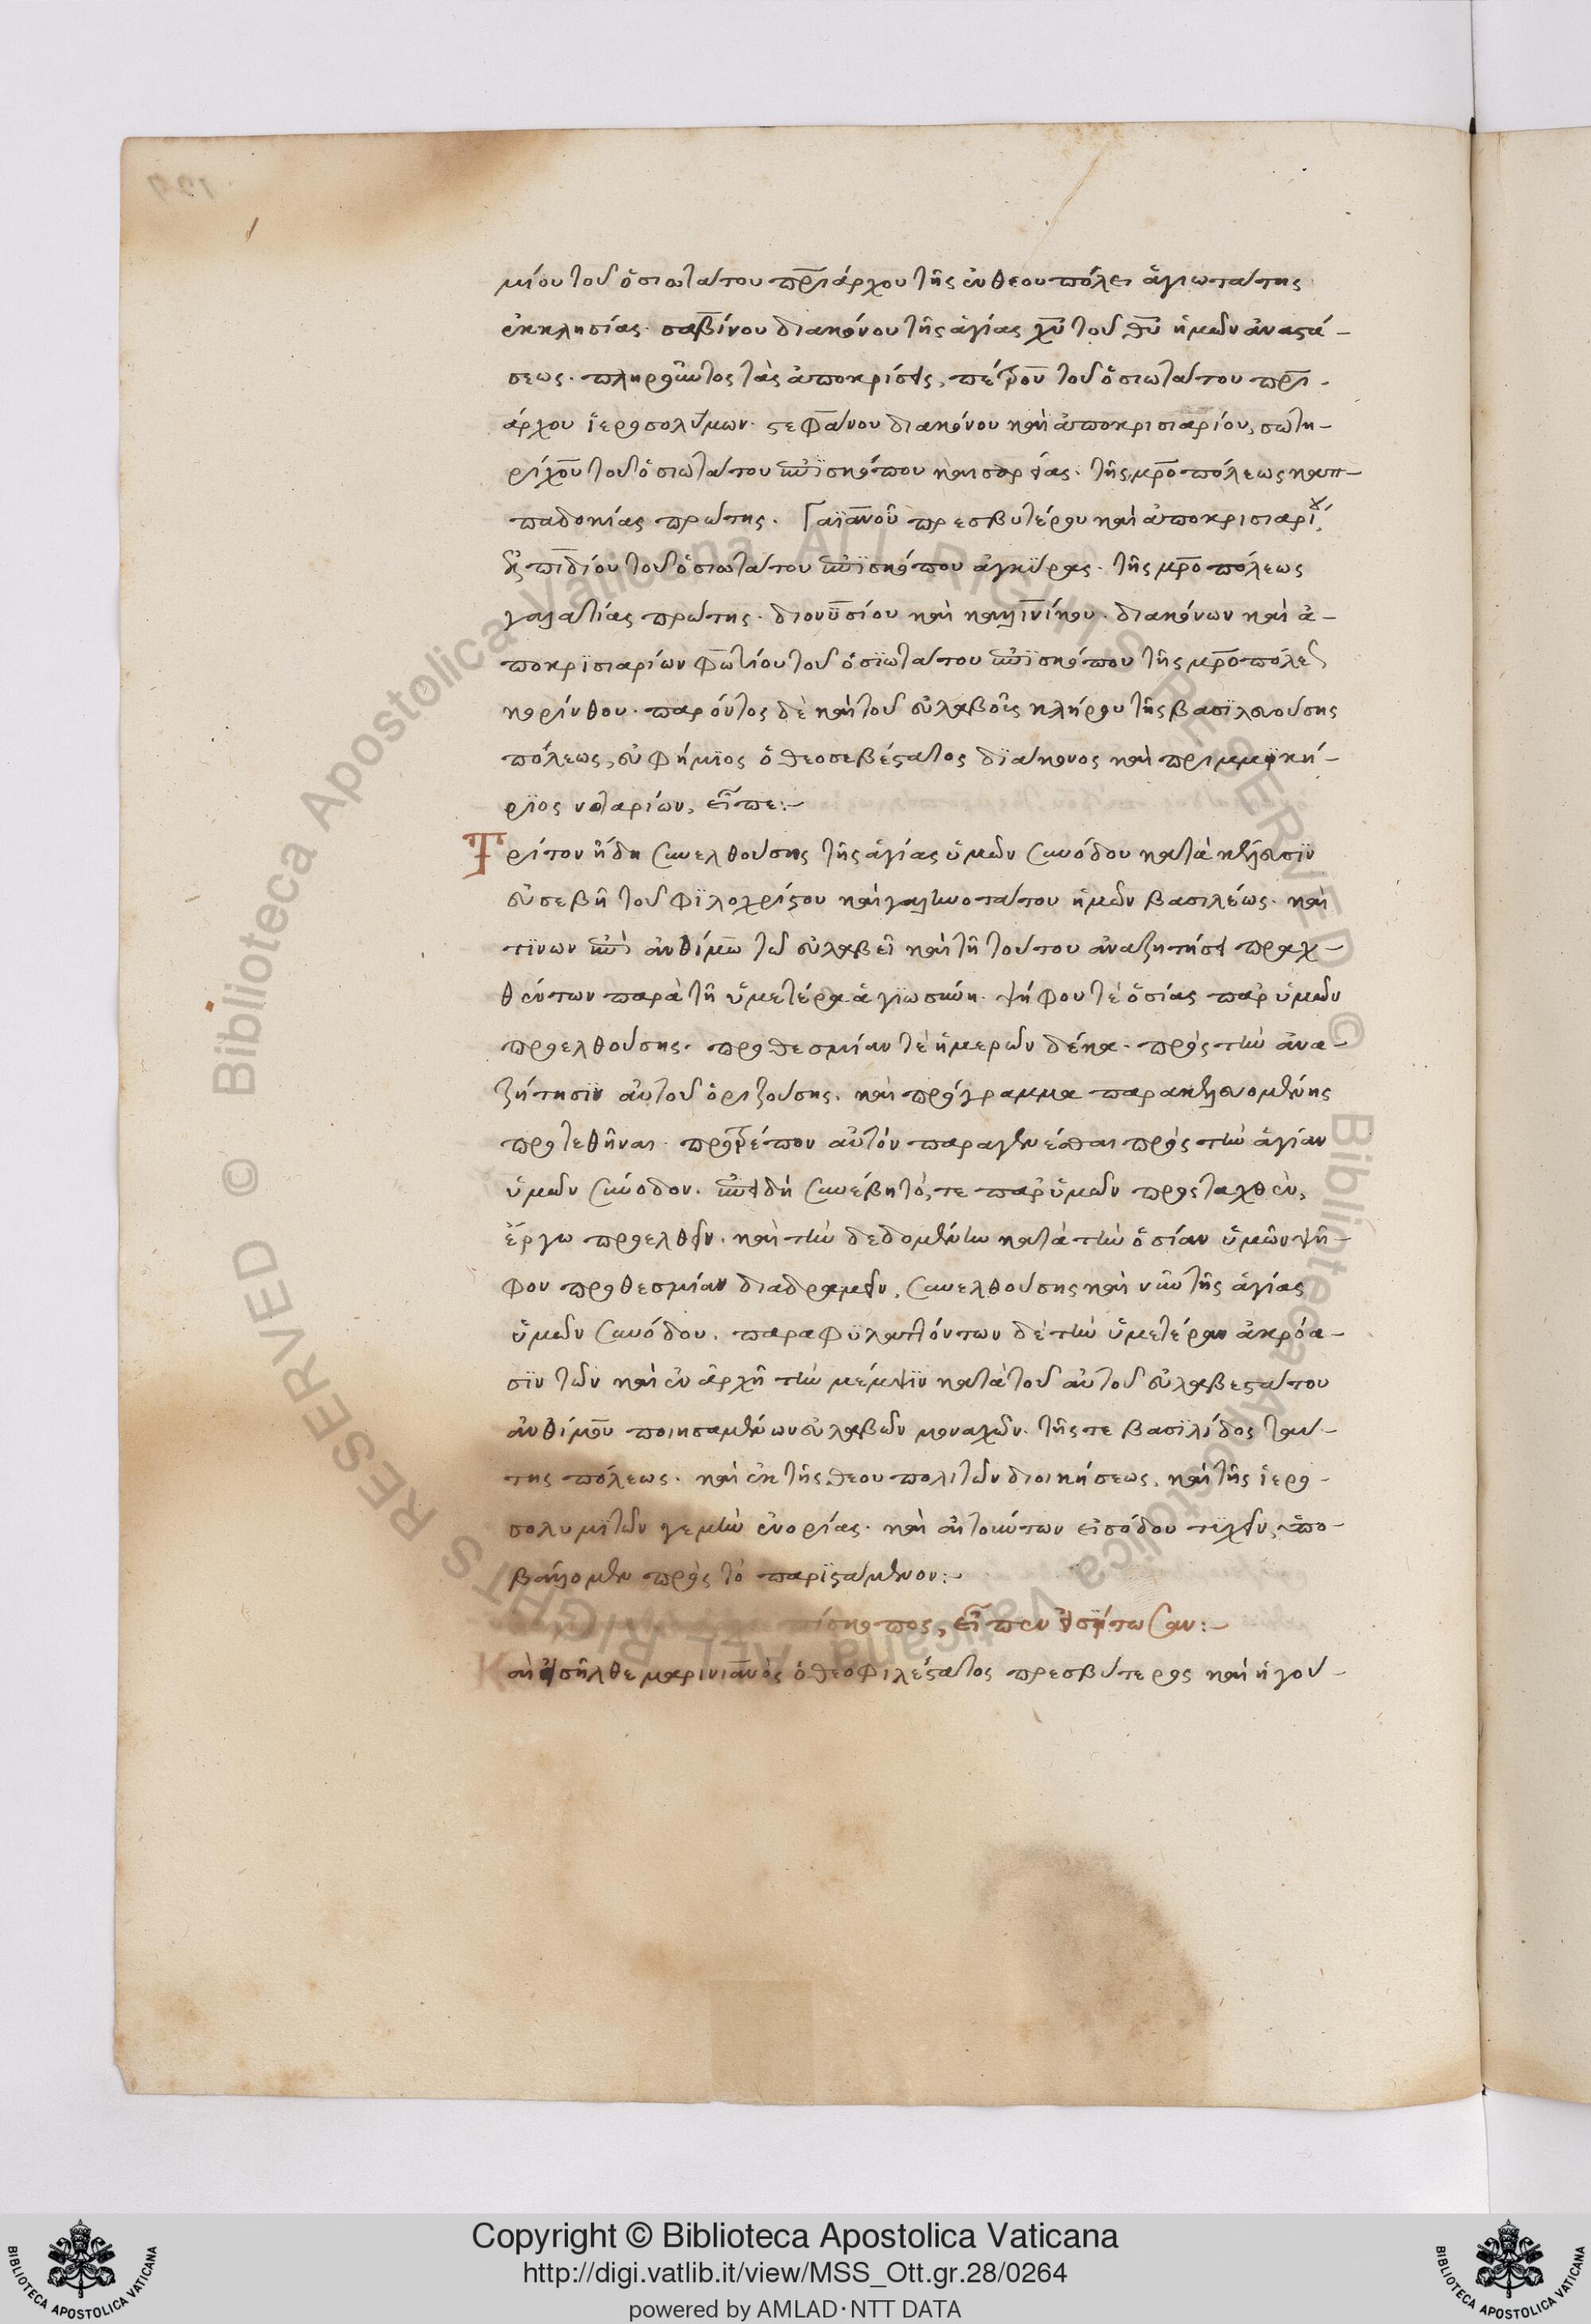 μίου τοῦ ὁσιωτάτου πρι̅άρχου τῆς ἐν θεουπόλει ἁγιωτάτης
ἐκκλησίας. σαβίνου διακόνου τῆς ἁγίας χυ̅ τοῦ θυ̅ ἡμῶν ἀναστά-
σεως. πληροῦντος τὰς ἀποκρίσεις, πέτρου τοῦ ὁσιωτάτου πρι̅-
άρχου ἱεροσολύμων. στεφάνου διακόνου καὶ ἀποκρισιαρίου, σωτη-
ρίχου τοῦ ὁσιωτάτου ἐπϊσκόπου καισαρείας. τῆς μρ̅οπόλεως καπ-
παδοκίας πρώτης. Γαϊανοῦ πρεσβυτέρου καὶ ἀποκρισιαρίου,
ἐλπιδίου τοῦ ὁσιωτάτου ἐπϊσκόπου ἀγκϋρας. τῆς μρ̅οπόλεως
γαλατίας πρώτης. διονϋσίου καὶ καλλινίκου. διακόνων καὶ ἀ-
ποκρϊσιαρίων φωτίου τοῦ ὁσϊωτάτου ἐπϊσκόπου τῆς μρ̅οπόλεως
κορίνθου. παρόντος δὲ καὶ τοῦ εὐλαβοῦς κλήρου τῆς βασϊλευούσης
πόλεως, εὐφήμϊος ὁ θεοσεβέστατος δϊάκονος καὶ πριμμϊκή-
ρϊος νοταρίων, εἶπε:-
Τρίτον ἤδη συνελθούσης τῆς ἁγίας ὑμῶν συνόδου κατὰ κέλευσϊν
εὐσεβῆ τοῦ φϊλοχρίστου καὶ γαληνοτάτου ἡμῶν βασιλέως. καὶ
τϊνων ἐπὶ ἀνθίμω τῶ εὐλαβεῖ καὶ τῆ τούτου ἀναζητήσει πραχ-
θέντων παρὰ τῆ ὑμετέρα ἁγϊωσύνη. ψήφου τὲ ὁσίας παρ ὑμῶν
προελθούσης. προθεσμίαν τὲ ἡμερῶν δέκα. πρὸς τὴν ἀνα-
ζήτησϊν αὐτοῦ ὁριζούσης. καὶ πρόγραμμα παρακελευομένης
προτεθῆναι. προτρέπον αὐτὸν παραγενέσθαι πρὸς τὴν ἁγίαν
ὑμῶν σύνοδον. ἐπειδὴ συνέβη τό, τε παρ ὑμῶν προσταχθὲν,
ἔργω προελθεῖν. καὶ τὴν δεδομένην κατὰ τὴν ὁσίαν ὑμῶν ψῆ-
φον προθεσμίαν διαδραμεῖν, συνελθούσης καὶ νῦν τῆς ἁγίας
ὑμῶν συνόδου. παραφϋλαττόντων δὲ τὴν ὑμετέραν ἀκρόα-
σϊν τῶν καὶ ἐν ἀρχῆ τὴν μέμψϊν κατὰ τοῦ αὐτοῦ εὐλαβεστάτου
ἀνθίμου ποιησαμένων εὐλαβῶν μοναχῶν. τῆς τε βασϊλίδος ταύ-
της πόλεως. καὶ ἐκ τῆς θεουπολιτῶν διοικήσεως. καὶ τῆς ἱερο-
σολυμϊτῶν γε μὴν ἐνορίας. καὶ αἰτούντων εἰσόδου τϋχεῖν, ὑπο-
βάλλομεν πρὸς τὸ παρϊστάμενον:-
πίσκοπος, εἶπεν εἰσϊτωσαν:-
Καὶ εἰσῆλθε μαρινιανὸς ὁ θεοφιλέστατος πρεσβύτερος καὶ ἡγού-
Copyright © Biblioteca Apostolica Vaticana
http://digi.vatlib.it/view/MSS_Ott.gr.28/0264
powered by AMLAD·NTT DATA